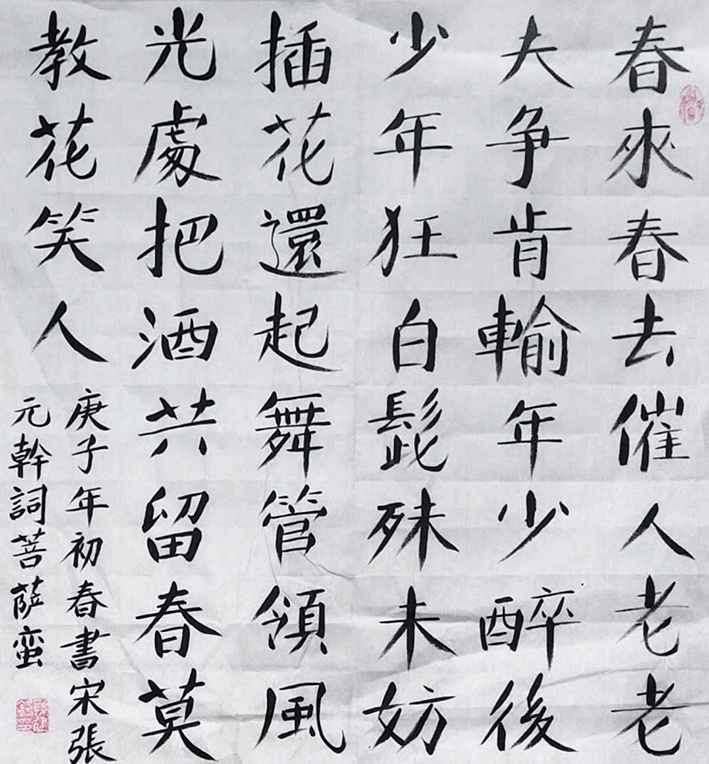 春來春去催人老老
夫争肯輸年少醉後
少年狂白髭殊未妨
插花還起舞管領風
光處把酒共留春莫
教花笑人
庚子年初春書宋張
元幹詞菩萨蛮